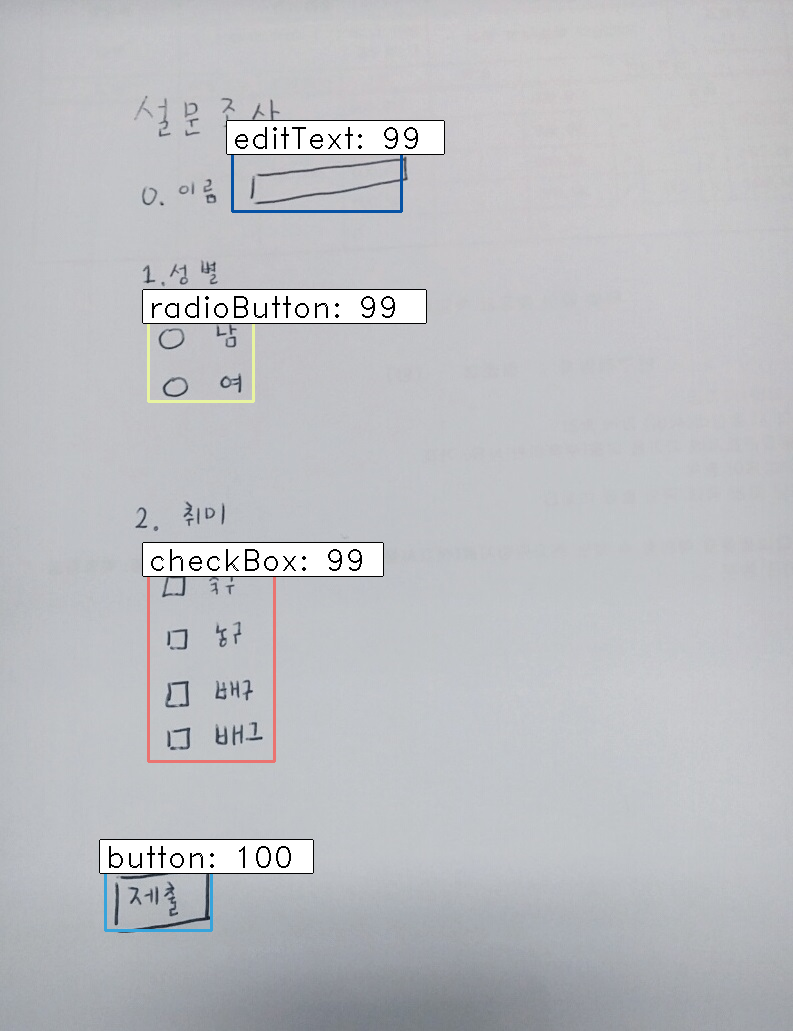 설문조사
editText: 99
0. 이름
1. 성별
radioButton: 99
남
여
2. 취미
checkBox: 99
축구
농구
배구
배그
button: 100
제출